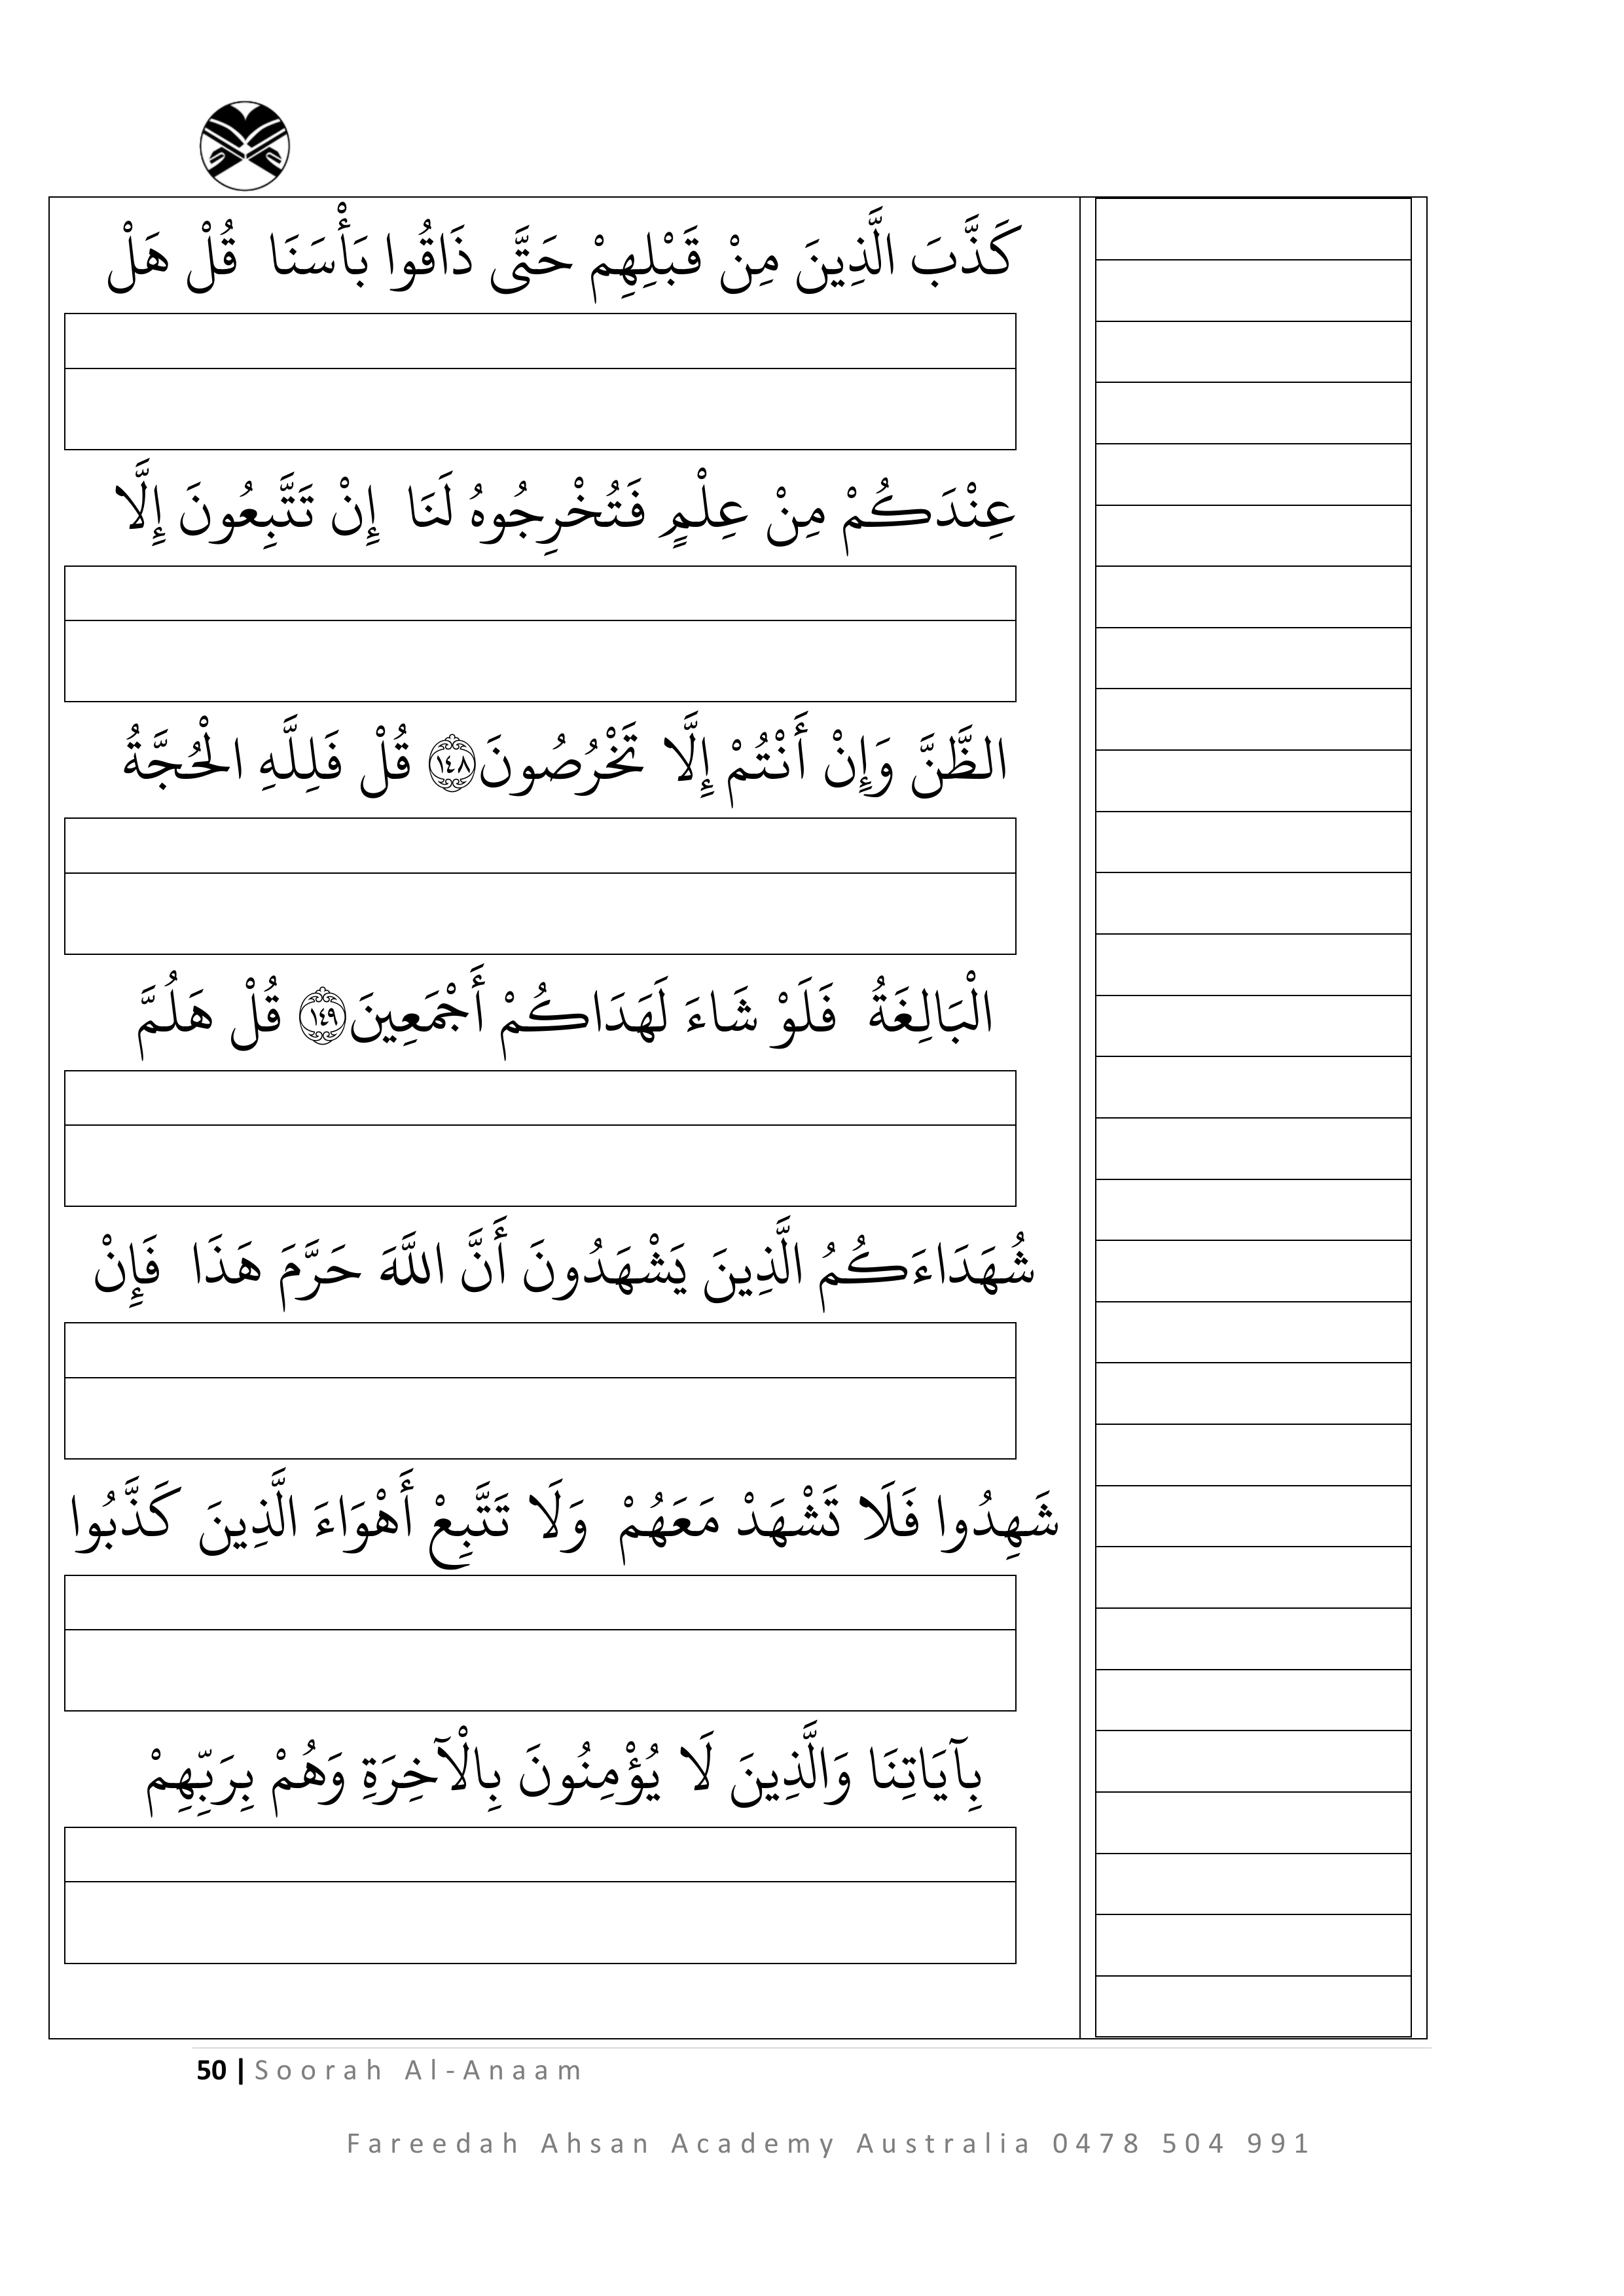 كَذَّبَ الَّذِينَ مِنْ قَبْلِهِمْ حَتَّى ذَاقُوا بَأْسَنَا قُلْ هَلْ
عِنْدَكُمْ مِنْ عِلْمٍ فَتُخْرِجُوهُ لَنَا إِنْ تَتَّبِعُونَ إِلَّا
الظَّنَّ وَإِنْ أَنْتُمْ إِلَّا تَخْرُصُونَ ﴿١٤٨﴾ قُلْ فَلِلَّهِ الْحُجَّةُ
الْبَالِغَةُ فَلَوْ شَاءَ لَهَدَاكُمْ أَجْمَعِينَ ﴿١٤٩﴾ قُلْ هَلُمَّ
شُهَدَاءَكُمُ الَّذِينَ يَشْهَدُونَ أَنَّ اللَّهَ حَرَّمَ هَذَا فَإِنْ
شَهِدُوا فَلَا تَشْهَدْ مَعَهُمْ وَلَا تَتَّبِعْ أَهْوَاءَ الَّذِينَ كَذَّبُوا
بِآيَاتِنَا وَالَّذِينَ لَا يُؤْمِنُونَ بِالْآخِرَةِ وَهُمْ بِرَبِّهِمْ
50 | Soorah Al-Anaam
Fareedah Ahsan Academy Australia 0478 504 991